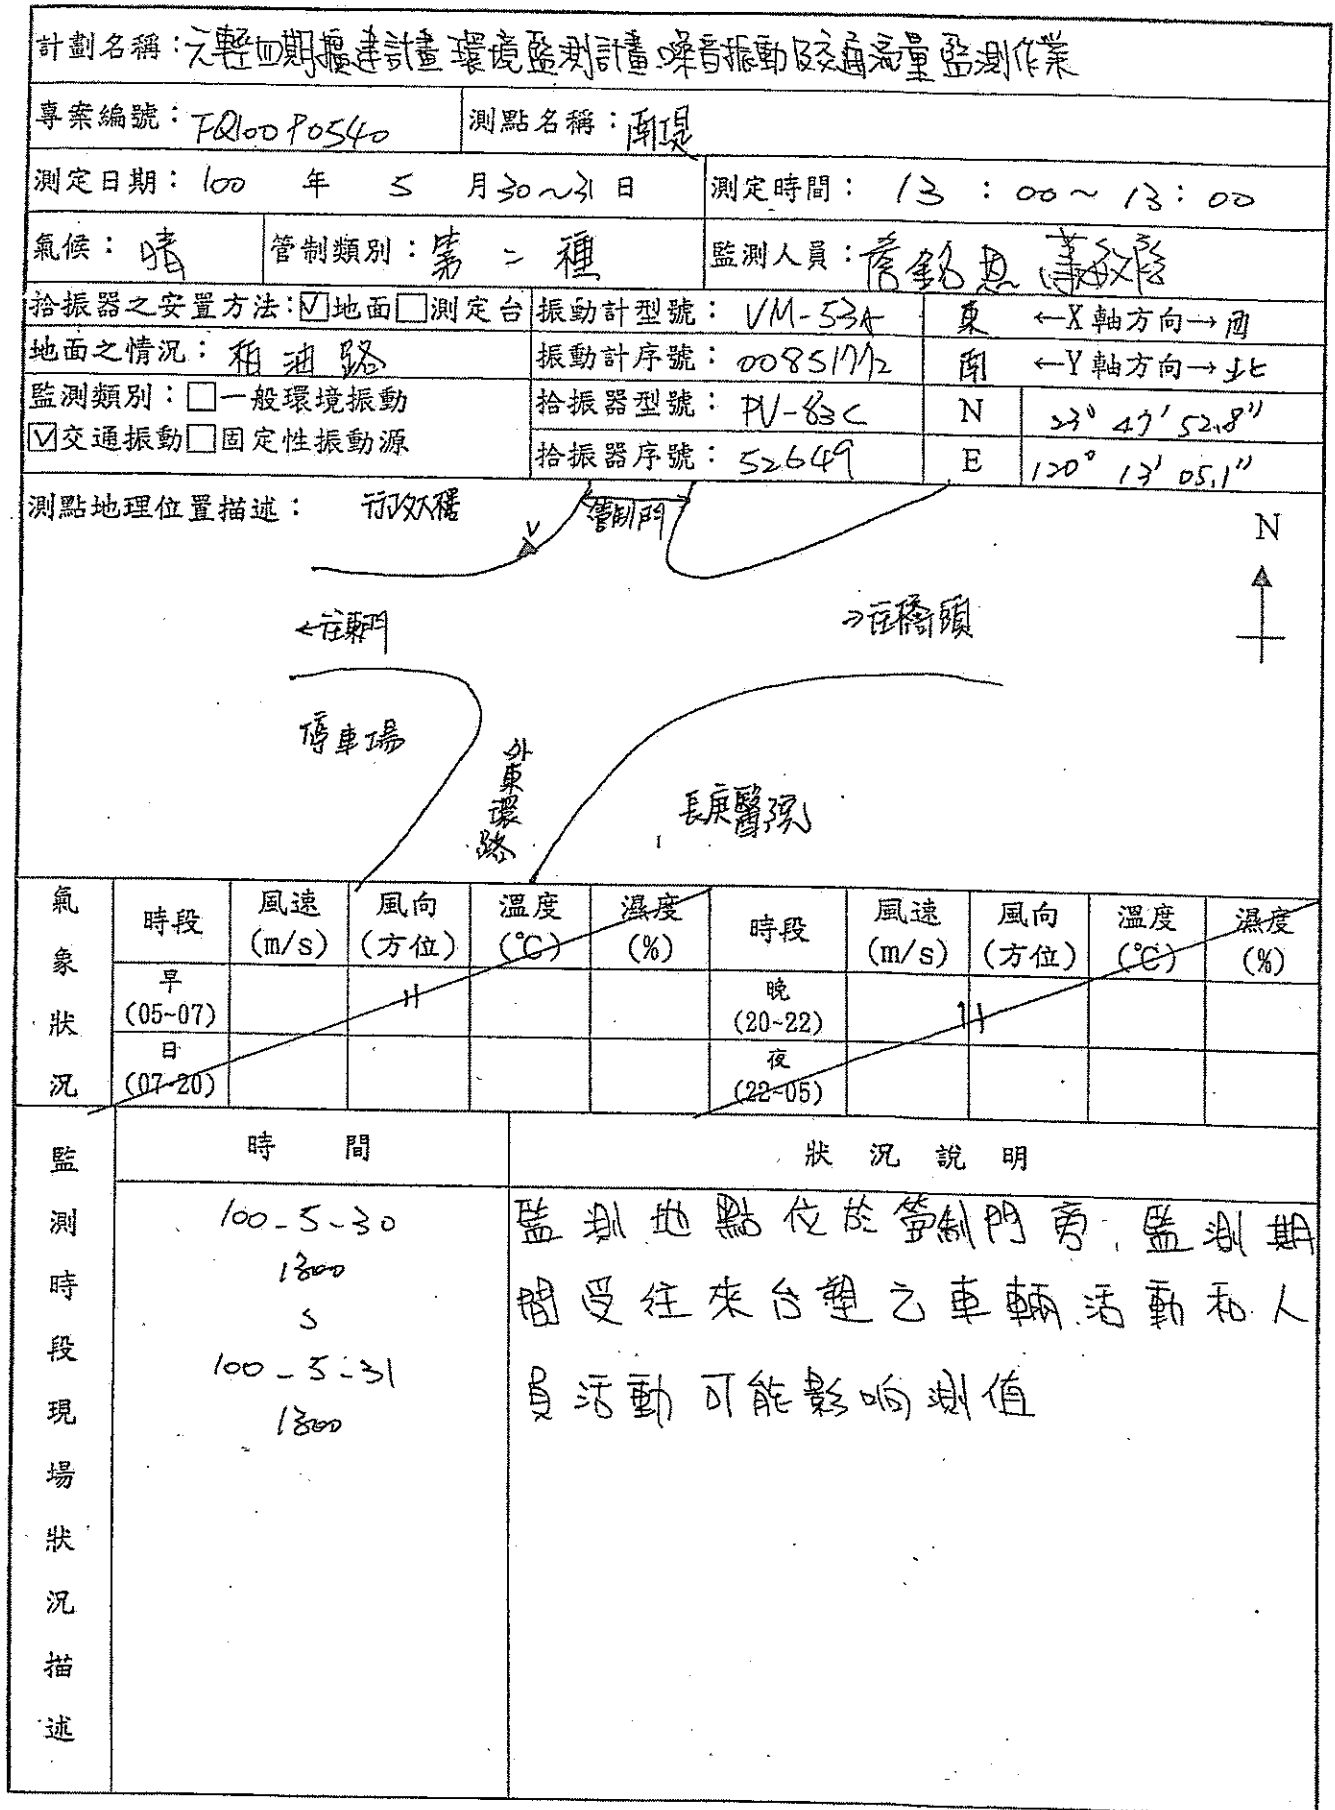 計劃名稱：六輕四期擴建計畫環境監測計畫噪音振動及交通流量監測作業
專案編號：FQ100P0540 測點名稱：南堤
測定日期：100 年 5 月30~31日 測定時間：13：00~13：00
氣候：晴 管制類別：第二種 監測人員：詹銘
拾振器之安置方法：☑地面□測定台 振動計型號：VM-53A 東 ←X軸方向→ 西
地面之情況：柏油路 振動計序號：00851772 南 ←Y軸方向→ 北
監測類別：□一般環境振動 拾振器型號：PV-83C N 23° 47' 52.8"
☑交通振動□固定性振動源 拾振器序號：52649 E 120° 13' 05.1"
測點地理位置描述： 行政大樓 管制門
V
N
←往東門 →往橋頭
停車場
外東環路
長庚醫院
氣象狀況
時段 風速(m/s) 風向(方位) 溫度(℃) 濕度(%) 時段 風速(m/s) 風向(方位) 溫度(℃) 濕度(%)
早(05~07) 晚(20~22)
日(07-20) 夜(22-05)
監測時段現場狀況描述
時 間 狀 況 說 明
100-5-30 監測地點位於管制門旁，監測期
1300 間受往來台塑之車輛活動和人
100-5-31 員活動可能影响測值
1300